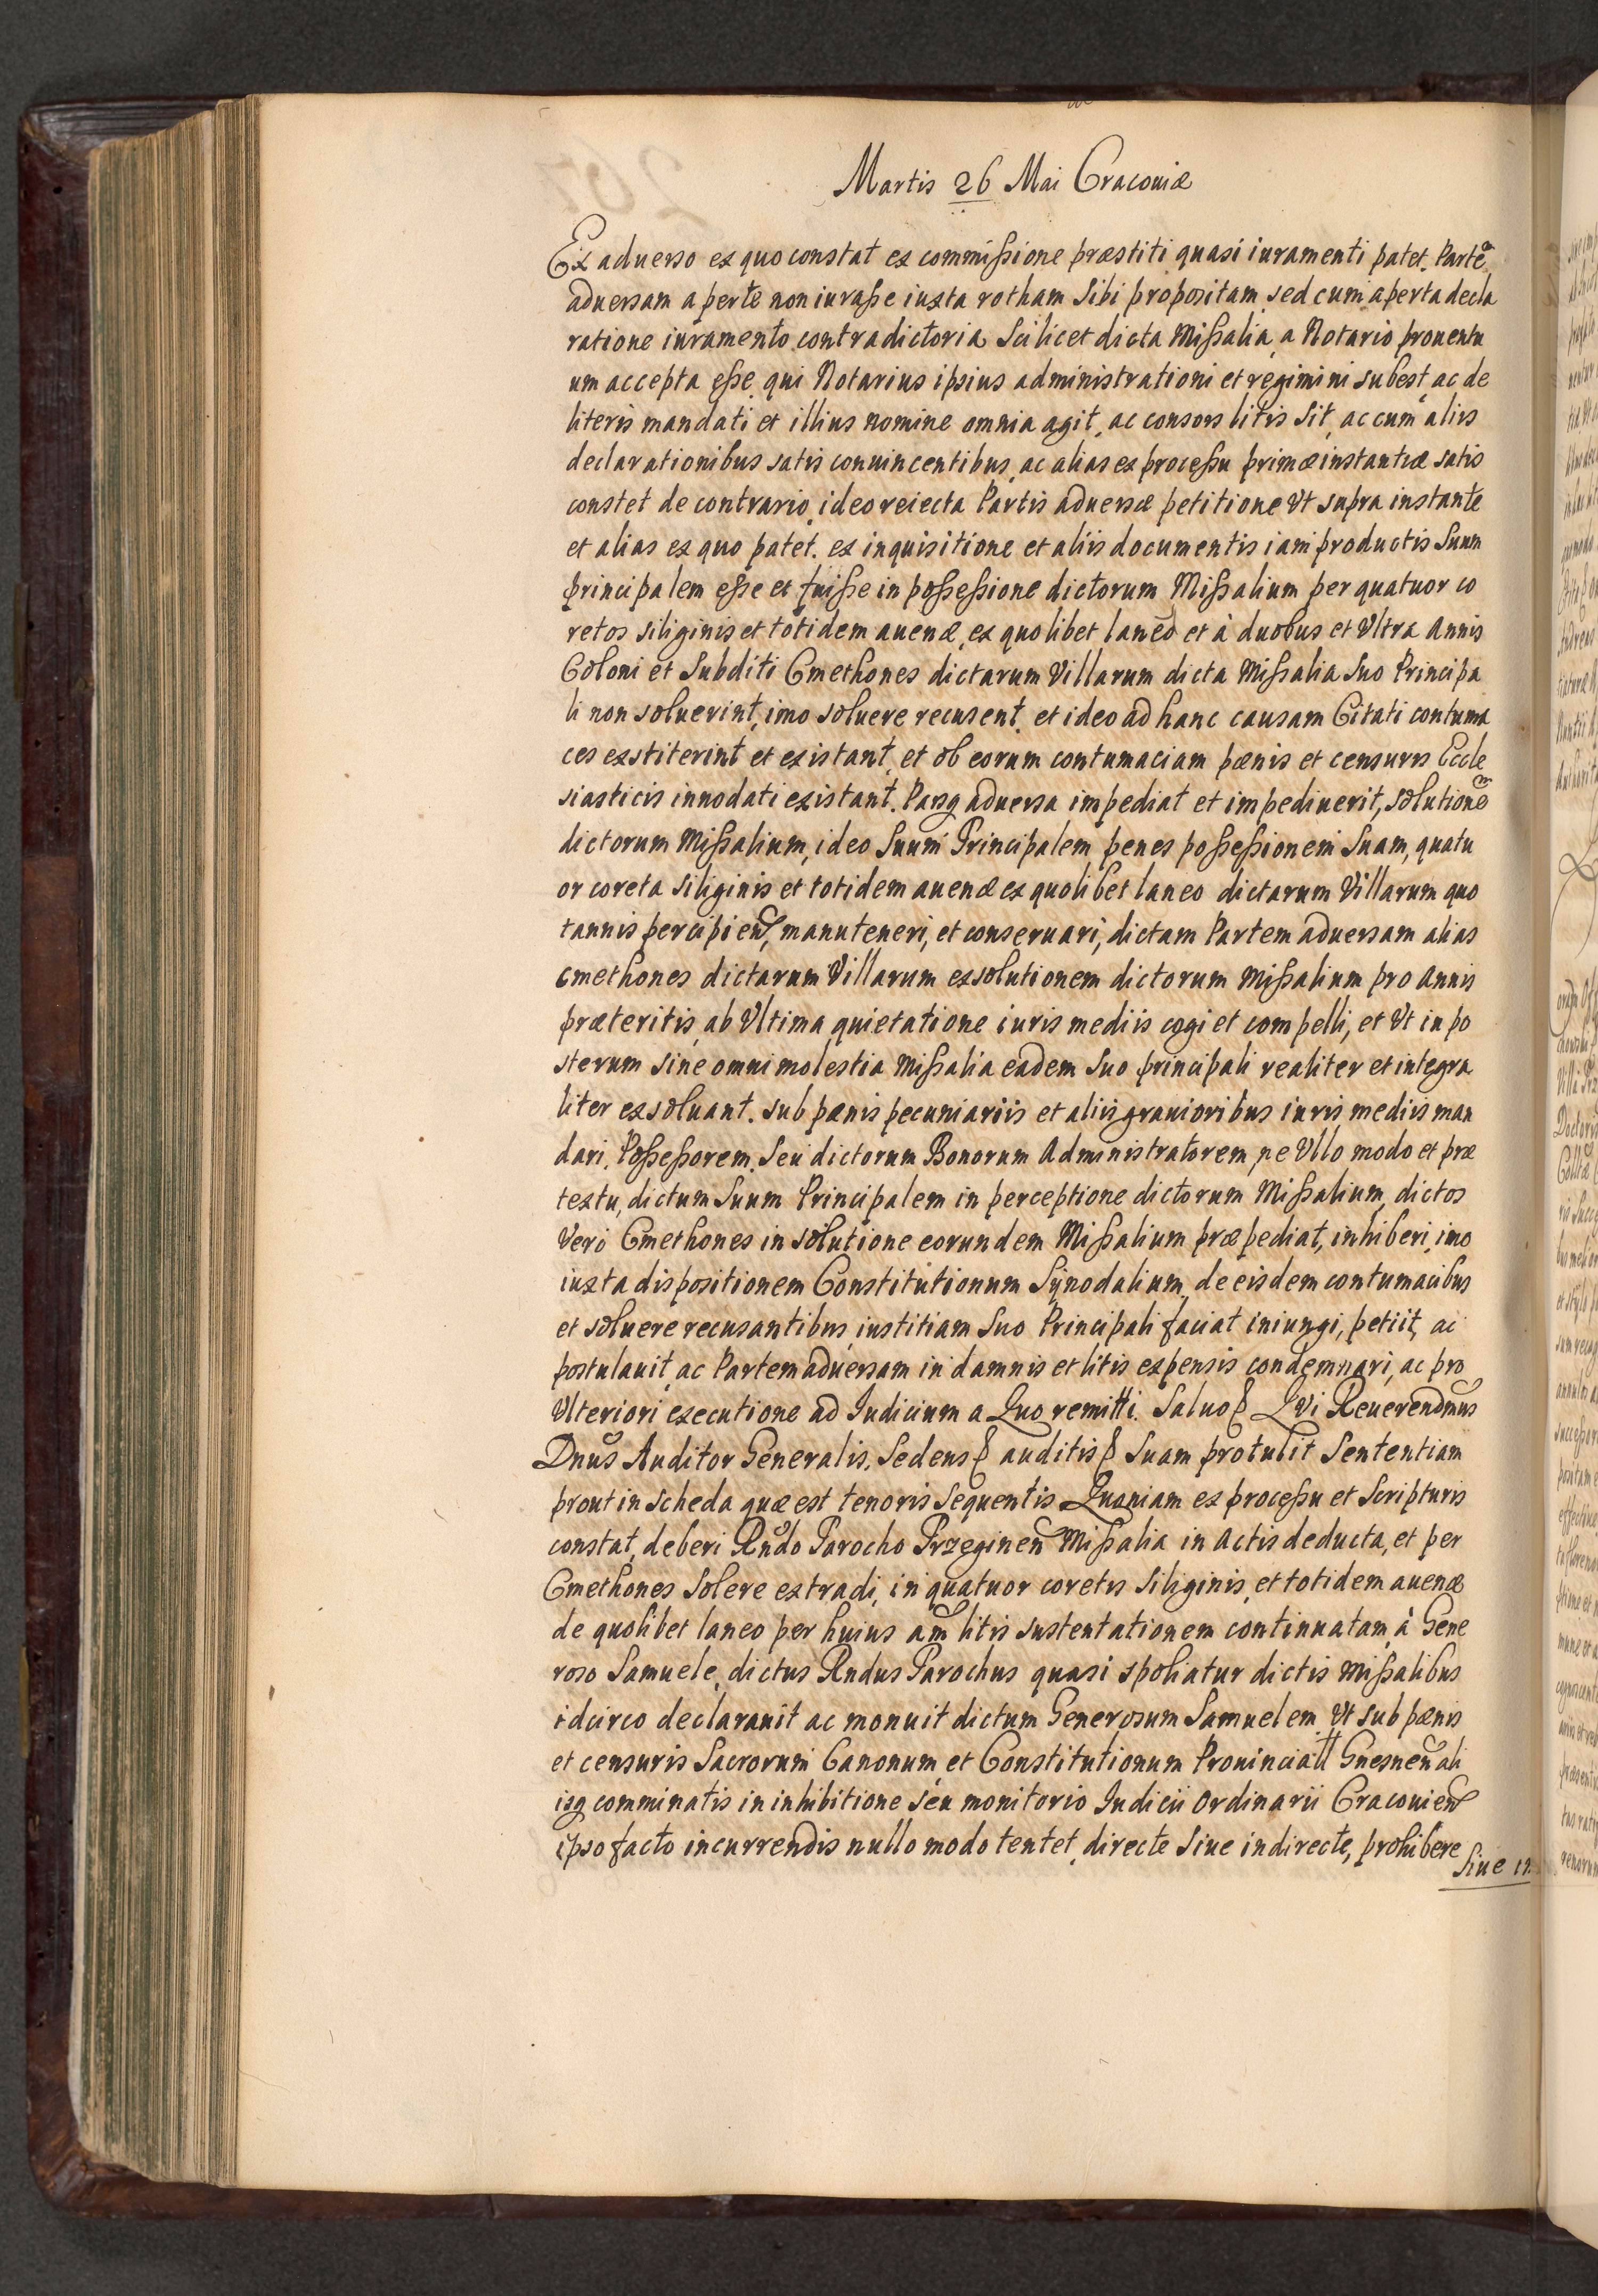 Martis 26 Mai Cracouiæ
Ex aduerso ex quo constat ex commißione præstiti quasi iuramenti patet. Partẽ
aduersam aperte non iuraße iuxta rotham Sibi propositam sed cum aperta decla
ratione iuramento contradictoria Scilicet dicta Mißalia a Notario prouentu
um accepta eße qui Notarius ipsius administrationi et regimini subest ac de
literis mandati et illius nomine omnia agit, ac consors litis Sit, ac cum aliis
declarationibus satis conuincentibus, ac alias ex proceßu primæ instantiæ satis
constet de contrario, ideo reiecta Partis aduersæ petitione Vt supra instante
et alias ex quo patet. ex inquisitione et aliis documentis iam productis Suum
principalem eße et fuiße in poßeßione dictorum Mißalium per quatuor co
retos siliginis et totidem auenæ, ex quolibet laneo et à duobus et Vltra Annis
Coloni et Subditi Cmethones dictarum Villarum dicta Mißalia Suo Principa
li non soluerint, imo soluere recusent. et ideo ad hanc causam Citati contuma
ces exstiterint et existant, et ob eorum contumaciam pænis et censuris Eccle
siasticis innodati existant. Parsq aduersa impediat et impediuerit, solutionẽ
dictorum Mißalium, ideo Suum Principalem penes poßeßionem Suam, quatu
or coreta Siliginis et totidem auenæ ex quolibet laneo dictarum Villarum quo
tannis percipien̄, manuteneri, et conseruari, dictam Partem aduersam alias
cmethones dictarum Villarum exsolutionem dictorum Mißalium pro Annis
præteritis, ab Vltima quietatione iuris mediis cogi et compelli, et Vt in po
sterum sine omni molestia Mißalia eadem Suo principali realiter et integra
liter exsoluant. sub pænis pecuniariis et aliis grauioribus iuris mediis man
dari, Poßeßorem, Seu dictorum Bonorum Administratorem, ne Vllo modo et præ
textu, dictum Suum Principalem in perceptione dictorum Mißalium, dictos
Vero Cmethones in solutione eorundem Mißalium præpediat, inhiberi, imo
iuxta dispositionem Constitutionum Synodalium, de eisdem contumacibus
et soluere recusantibus iustitiam Suo Principali faciat iniungi, petiit, ac
postulauit, ac Partem aduersam in damnis et litis expensis condemnari, ac pro
Vlteriori executione ad Iudicium a Quo remitti. Saluo Qvi Reuerendm̃us
Dnũs Auditor Generalis, Sedens auditis Suam protulit Sententiam
prout in Scheda quæ est tenoris Sequentis Quoniam ex proceßu et Scripturis
constat, deberi Rñdo Parocho Przeginen̄ Mißalia in Actis deducta, et per
Cmethones Solere extradi, in quatuor coretis Siliginis, et totidem auenæ
de quolibet laneo per huius am̄ litis sustentationem continuatam, à Gene
roso Samuele, dictus Rndus Parochus quasi spoliatur dictis Mißalibus
idcirco declarauit ac monuit dictum Generosum Samuelem, Vt sub pænis
et censuris Sacrorum Canonum, et Constitutionum Prouinciall Gnesnen̄ ali
isq comminatis in inhibitione seu monitorio Iudicii Ordinarii Cracouien̄
ipso facto incurrendis nullo modo tentet, directe Siue indirecte, prohibere
Siue